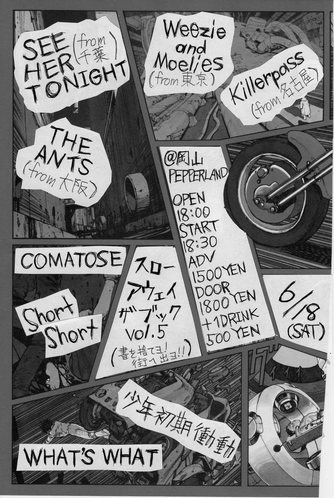 SEE
HER
TONIGHT
(from
千葉)
Weezie
and
Moelies
(from 東京)
Killerpass
(from 名古屋)
THE
ANTS
(from 大阪)
@岡山
PEPPERLAND
OPEN
18:00
START
18:30
ADV
1500 YEN
DOOR
1800 YEN
+1DRINK
500 YEN
6/18
(SAT)
COMATOSE
Short
Short
スロー
アウェイ
ザ・ブック
vol.5
(書を捨てヨ!
街へ出ヨ!!)
少年初期衝動
WHAT'S WHAT